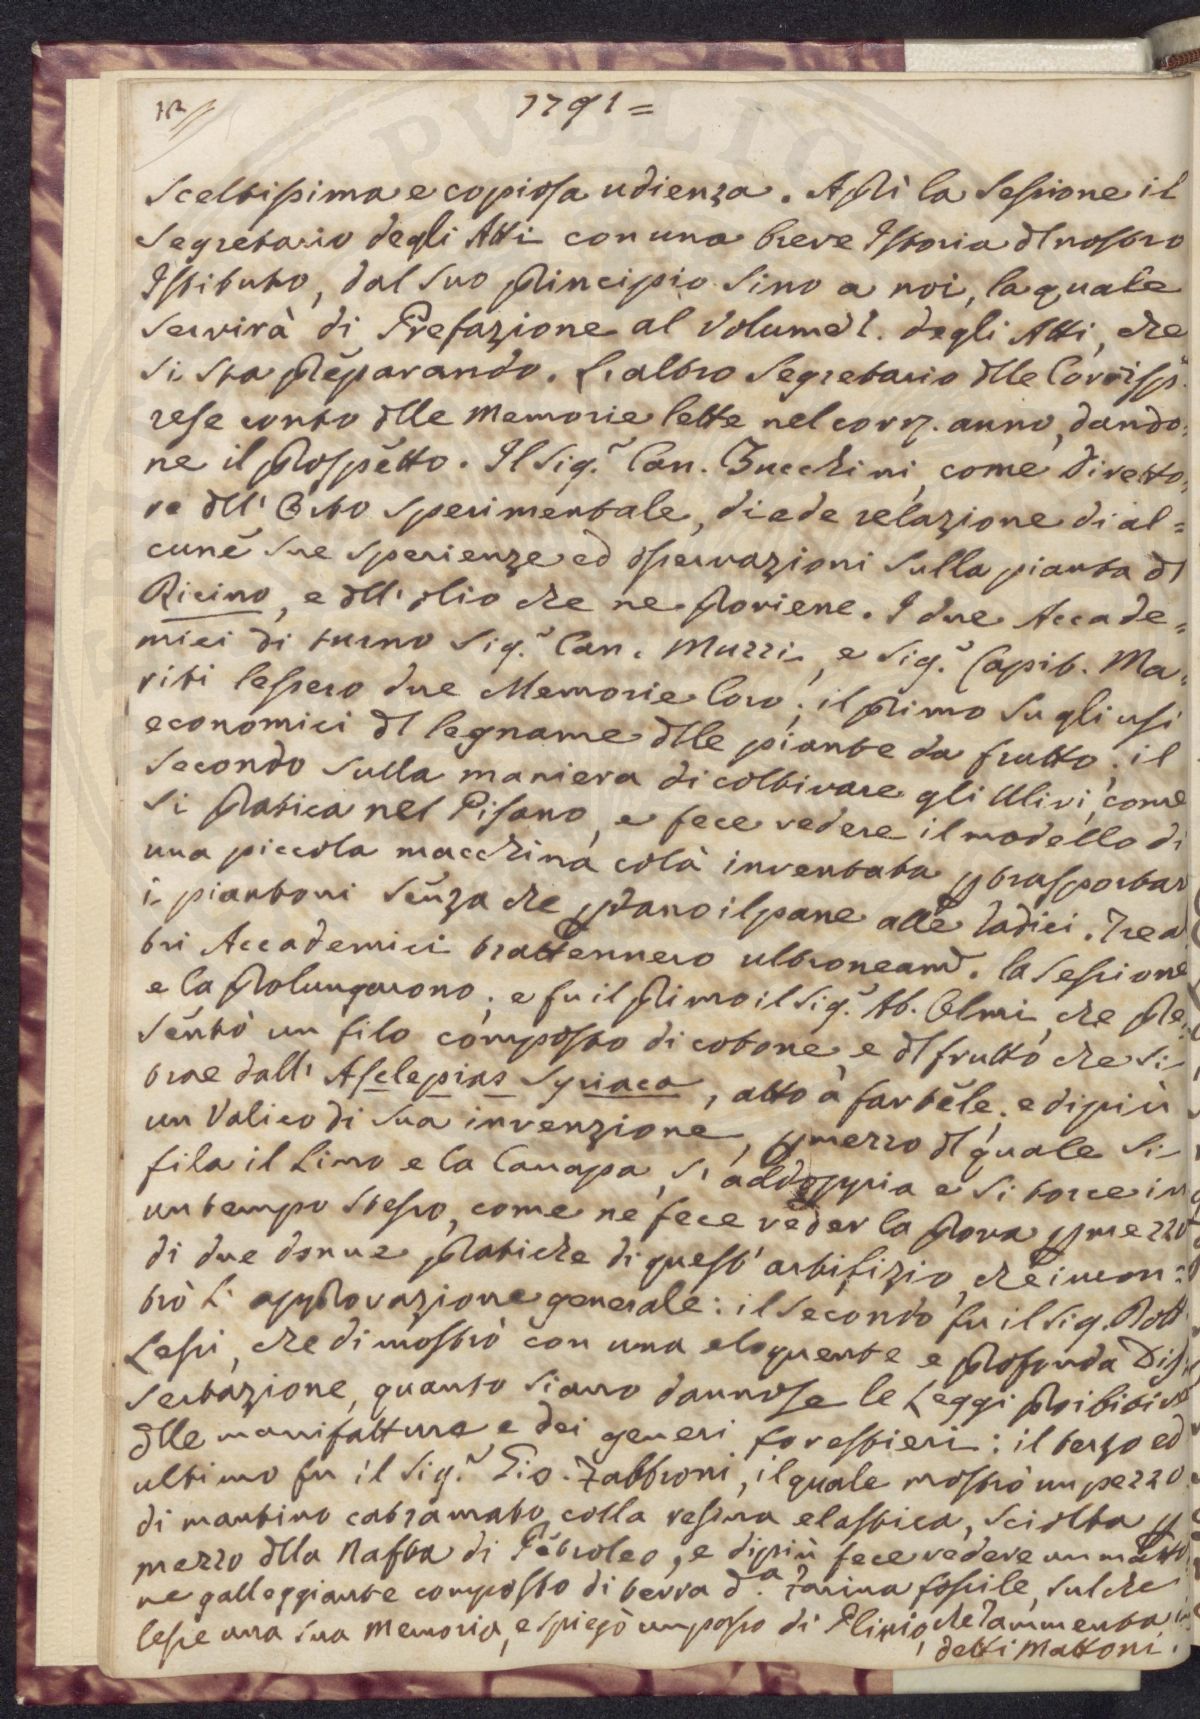 12//
1791 =
Sceltissima e copiosa udienza. Aprì la Sessione il
Segretario degli Atti con una breve Istoria dl nostro
Istituto, dal suo principio sino a noi, la quale
servirà di Prefazione al Volume 2. degli Atti, che
si sta preparando. L'altro Segretario dlle Corrisp.
rese conto dlle Memorie lette nel corr. anno, dando:
ne il prospetto. Il Sig.r Can. Zucchini, come diretto:
re dll' Orto sperimentale, diede relazione di al=
cune sue sperienze ed osservazioni sulla pianta dl
Ricino, e dll' olio che ne proviene. I due Accade=
mici di turno Sig.r Can. Muzzi, e Sig.r Capit. Ma:
riti lessero due Memorie loro; il primo sugli usi
economici dl legname dlle piante da frutto; il
secondo sulla maniera di coltivare gli Ulivi, come
si pratica nel Pisano, e fece vedere il modello di
una piccola macchina colà inventata p trasportar
i piantoni senza che pdano il pane alle radici. Tre al
tri Accademici trattennero ultroneamd. la Sessione
e la prolungarono; e fu il primo il Sig.r Ab. Olmi, che pre:
sentò un filo composto di cotone, e dl frutto che si
trae dall' Asclepias Syriaca, atto a far tele; e di più
un Valico di sua invenzione, p mezzo dl quale si
fila il Lino e la Canapa, s' addoppia e si torce in
un tempo stesso, come ne fece veder la prova p mezzo
di due donne pratiche di quest' artifizio, che incon=
trò l' approvazione generale: il secondo fu il Sig. Dott.
Lessi, che dimostrò con una eloquente e profonda Dis
sertazione, quanto siano dannose le Leggi proibitive
dlle manifatture e dei generi forestieri: il terzo ed
ultimo fu il Sig.r Gio. Fabbroni, il quale mostrò un pezzo
di mantino catramato colla resina elastica, sciolta p
mezzo dlla Nafta di Petroleo, e di più fece vedere un matto
ne galleggiante composto di terra d.a Farina fossile, sul che
lesse una sua Memoria, e spiegò un passo di Plinio, che rammenta i
detti Mattoni.